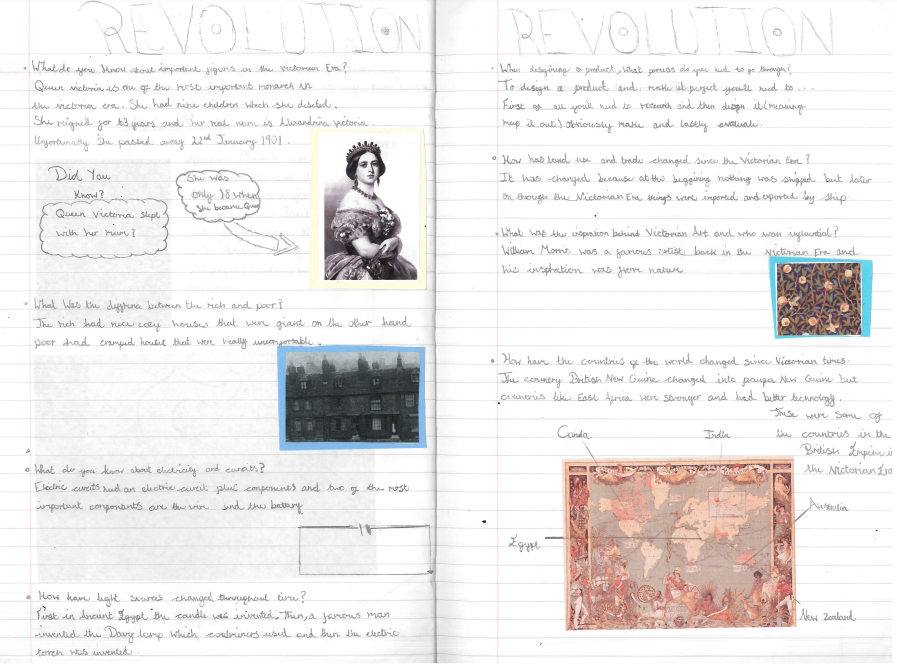 REVOLUTION
What do you know about important figures in the Victorian Era?
Queen victoria is one of the most important monarch in
the victoria era. She had nine children which she
She reigned for 63 years and her real name is Alexandria victoria.
Unfortunatly she passed away 22nd January 1901.
Did You
Know?
Queen Victoria slept
with her mum?
She was
only 18 when
she became Queen
What Was the between the rich and poor?
The rich had nice cosy houses that were giant on the other hand
poor had cramped house that were really uncomfortable.
What do you know about electricity and
Electric an electric plus components and two of the most
important components are the wire and the battery
How have light sources changed throughout time?
First in Ancient Egypt the candle was invented. Then, a famous man
invented the Davy lamp which coalminers used and then the electric
torch was invented.
REVOLUTION
When designing a product, What process do you need to go through?
To design a product and make it perfect you'll need to...
First of all you'll need to research and then design it (meaning
map it out) Obviously make and lastly evaluate.
How has land use and trade changed since the Victorian Era?
It has changed because at the beggining nothing was shipped but later
on through the Victorian Era things were imported and exported by ship
What was the inspiration behind Victorian Art and who was influential?
William Morris was a famous artist back in the Victorian Era and
his inspiration was from nature
How have the countries of the world changed since Victorian times.
The country British New Guine changed into New Guine but
countries like East Africa were stronger and had better technology.
These were some of
the countries in the
British Empire in
the Victorian Era
Canda
India
Australia
Egypt
New Zealand